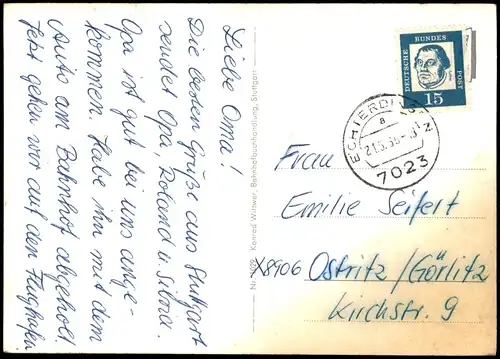 Liebe Oma!
Die besten Grüße aus Stuttgart
sendet Opa, Roland u. Silvia.
Opa ist gut bei uns ange-
kommen. Habe ihn mit dem
Auto am Bahnhof abgeholt.
Jetzt gehen wir auf den Flughafen.
Konrad Wittwer, Bahnhofbuchhandlung, Stuttgart
DEUTSCHE BUNDES POST
15
ECHTERDINGEN
a
7023
Frau
Emilie Seifert
X8906 Ostritz/Görlitz
Kirchstr. 9